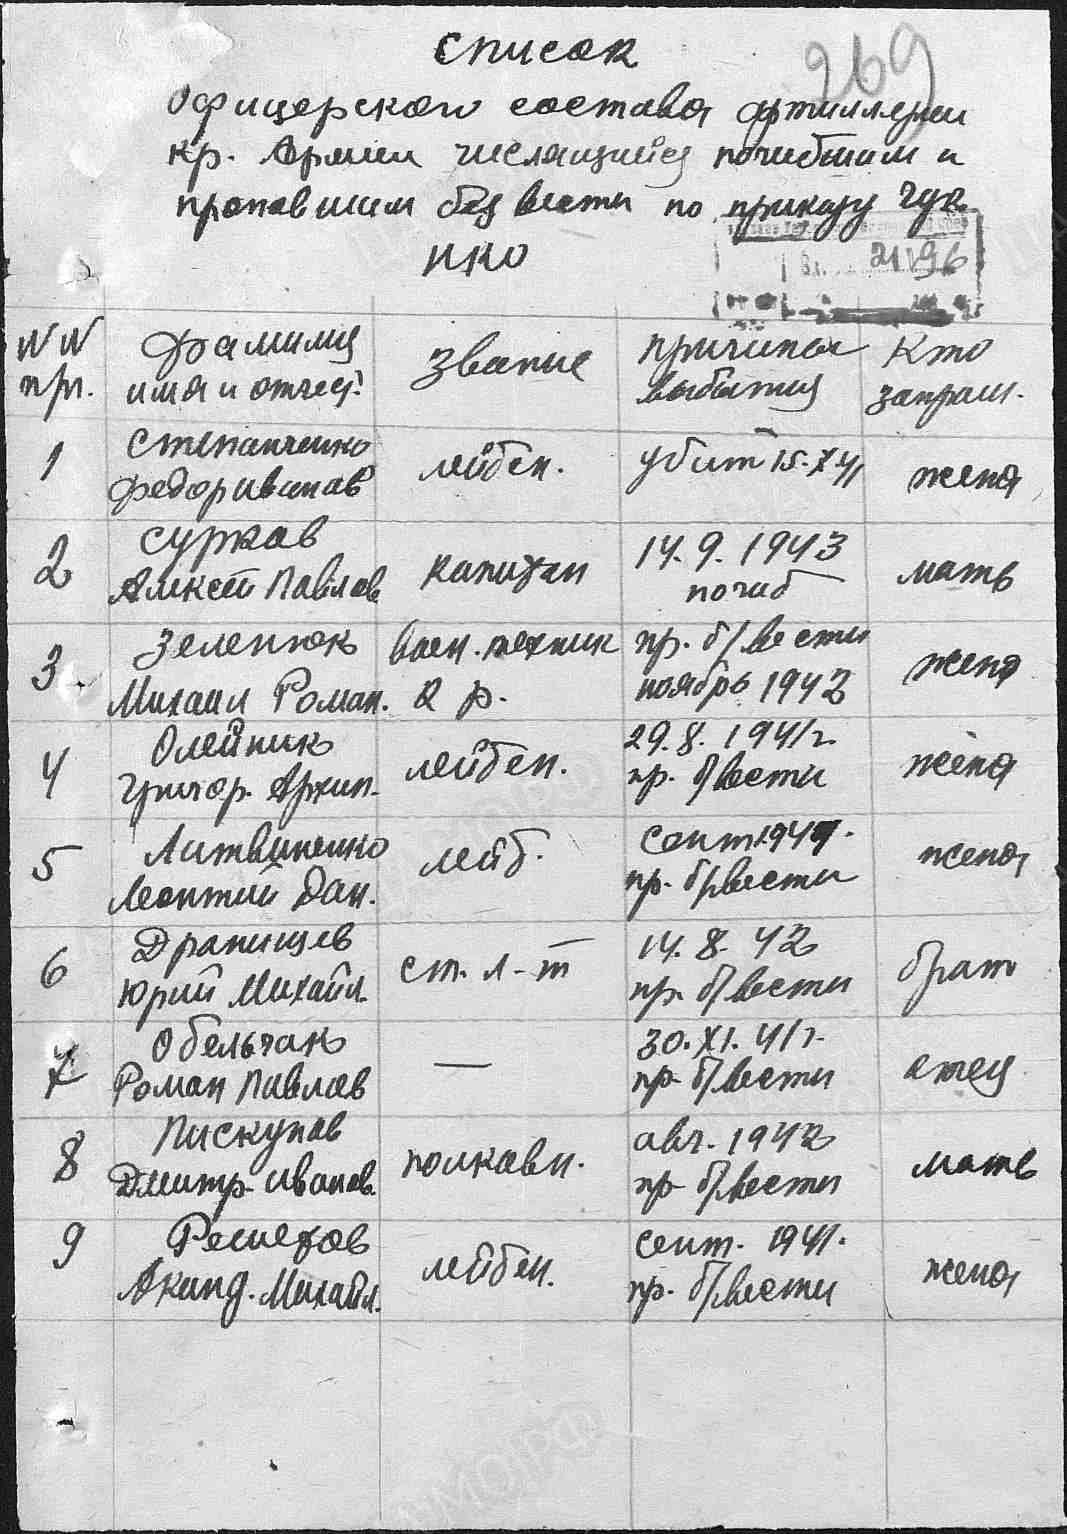 269
Список
офицерского состава артиллерии
кр. Армии числящийся погибшим и
пропавшим без вести по приказу ГУК
НКО
21 V 96
NN пп. Фамилия имя и отчест. Звание причина выбытия Кто запраш.
1 Степанченко Федор Иванов лейтен. убит 15.X.41 жена
2 Сурков Алексей Павлов капитан 14.9.1943 погиб мать
3 Зеленюк Михаил Роман. воен. техник 2 р. пр. б/вести ноябрь 1942 жена
4 Олейник Григор. Архип. лейтен. 29.8.1941г. пр. б/вести жена
5 Литвиненко Леонтий Дан. лейт. сент 1941. пр. б/вести жена
6 Драпищев Юрий Михайл. ст. л-т 14.8.42 пр. б/вести брат
7 Обельчак Роман Павлов — 30.XI.41г. пр. б/вести отец
8 Пискунов Дмитр. Иванов. полковн. авг. 1942 пр. б/вести мать
9 Решетов Акинд. Михайл. лейтен. сент. 1941. пр. б/вести жена